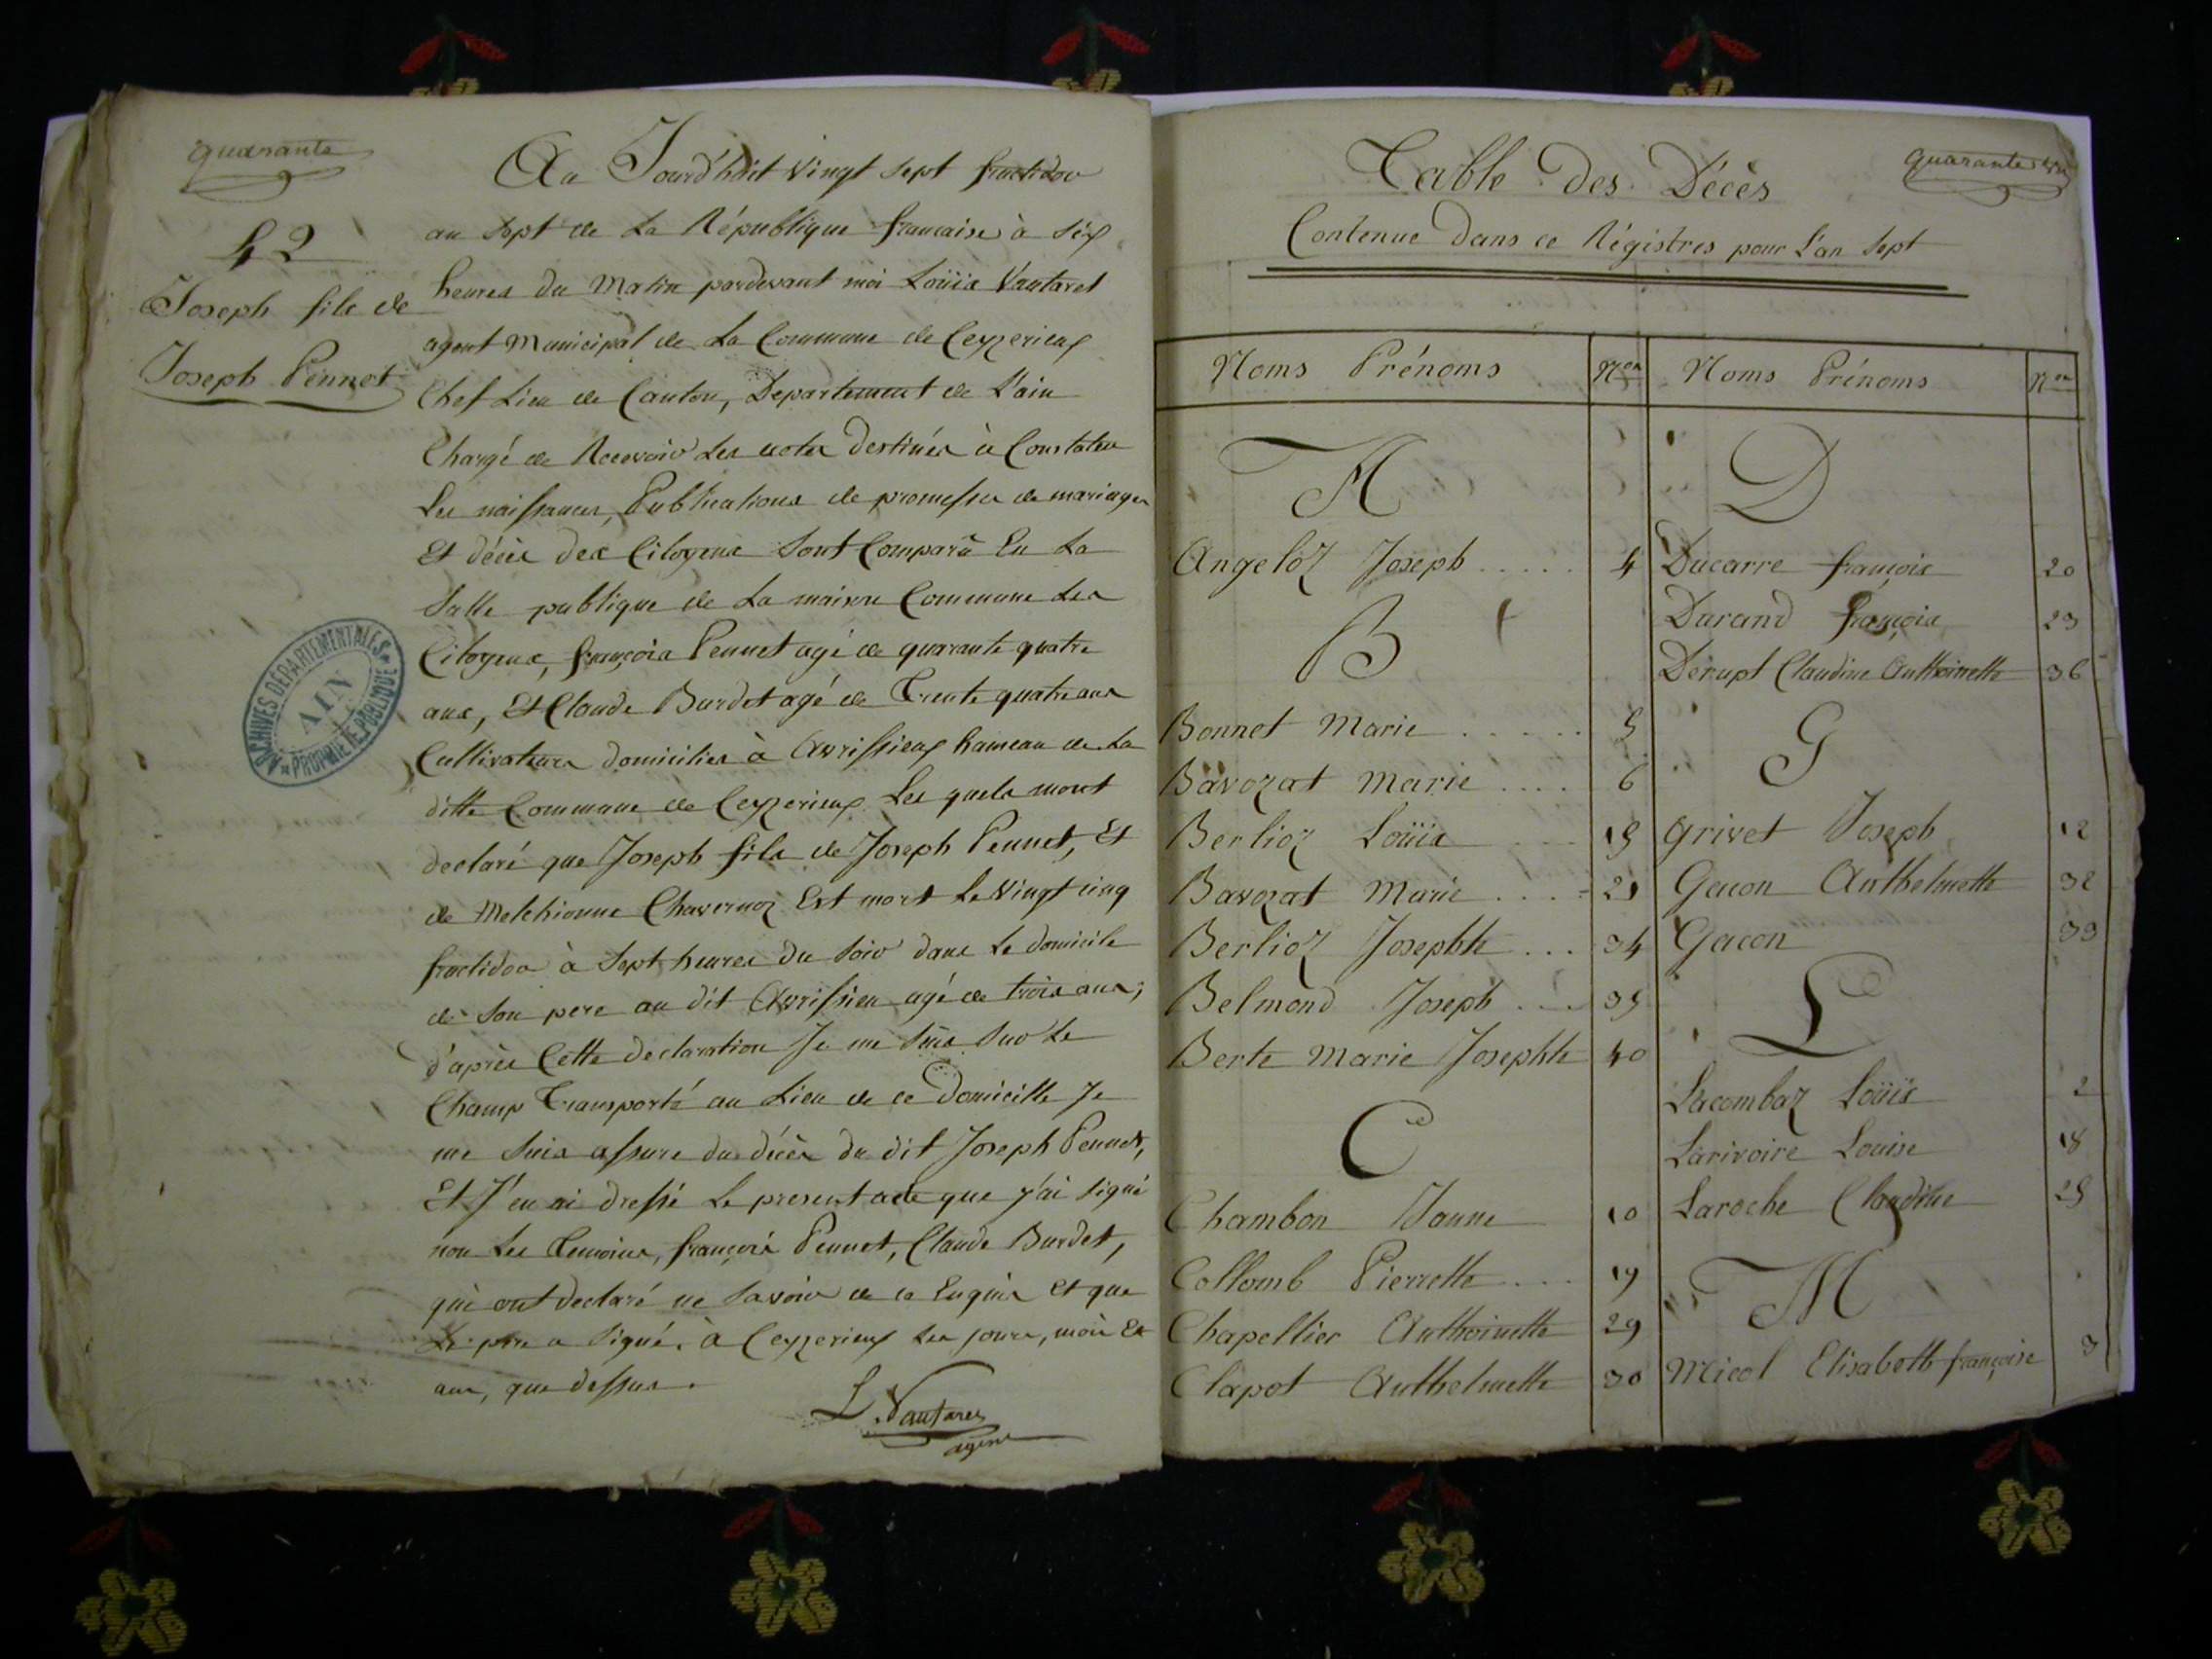 quarante
42
Joseph fils de
Joseph Pennet
Au Jourd'hdit vingt sept fructidor
an sept de La République francaise à six
heures du Matin pardevant moi Loüis Vautaret
agent Municipal de La Commune de Ceyzerieux
Chef Lieu de Canton, Departement de L'ain
Chargé de Recevoir Les actes destinés à Constater
Les naissances, Publications de promesses de mariages
Et décès des Citoyens Sont Comparû En La
Salle publique de La maison Commune Les
Citoyens, françois Pennet agé de quarante quatre
ans, Et Claude Burdet agé de Trente quatre ans
Cultivateurs domiciliés à Avrissieux hameau de La
ditte Commune de Ceyzerieux Les quels mont
declaré que Joseph fils de Joseph Pennet, Et
de Melchionne Chavernoz Est mort Le Vingt cinq
fructidor à Sept heures du Soir dans Le domicile
de Son pere au dit Avrissieu agé de trois ans;
d'après Cette declaration Je me Suis Sur Le
Champ Transporté au Lieu de ce Domicille Je
me Suis assure du décès du dit Joseph Pennet,
Et J'en ai dressé Le present acte que j'ai Signé
non Les Temoins, françois Pennet, Claude Burdet,
qui ont declaré ne Savoir de ce Enquis Et que
Le pere a Signé. à Ceyzerieux Les jours, mois Et
ans, que dessus.
L. Vautaret
agent
ARCHIVES DÉPARTEMENTALES
AIN
PROPRIÉTÉ PUBLIQUE
quarante un
Table des Décès
Contenue dans ce Régistres pour L'an Sept
Noms Prénoms Nos Noms Prénoms Nos
A
Angeloz Joseph ..... 4
B
Bonnet Marie ...... 5
Bavozat Marie .... 6
Berlioz Loüis ... 15
Bavozat Marie .... 21
Berlioz Josephte ... 34
Belmond Joseph ... 35
Berte Marie Josephte 40
C
Chambon Janne 10
Collomb Pierrette ... 19
Chapellier Anthoinette 29
Clapot Anthelmette 30
D
Ducarre françois 20
Durand françois 23
Derupt Claudine Anthoinette 36
G
Grivet Joseph 12
Gacon Anthelmette 32
Gacon 33
L
Lacombaz Loüis 2
Larivoire Louise 18
Laroche Claudine 25
M
Micol Elisabeth françoise 3